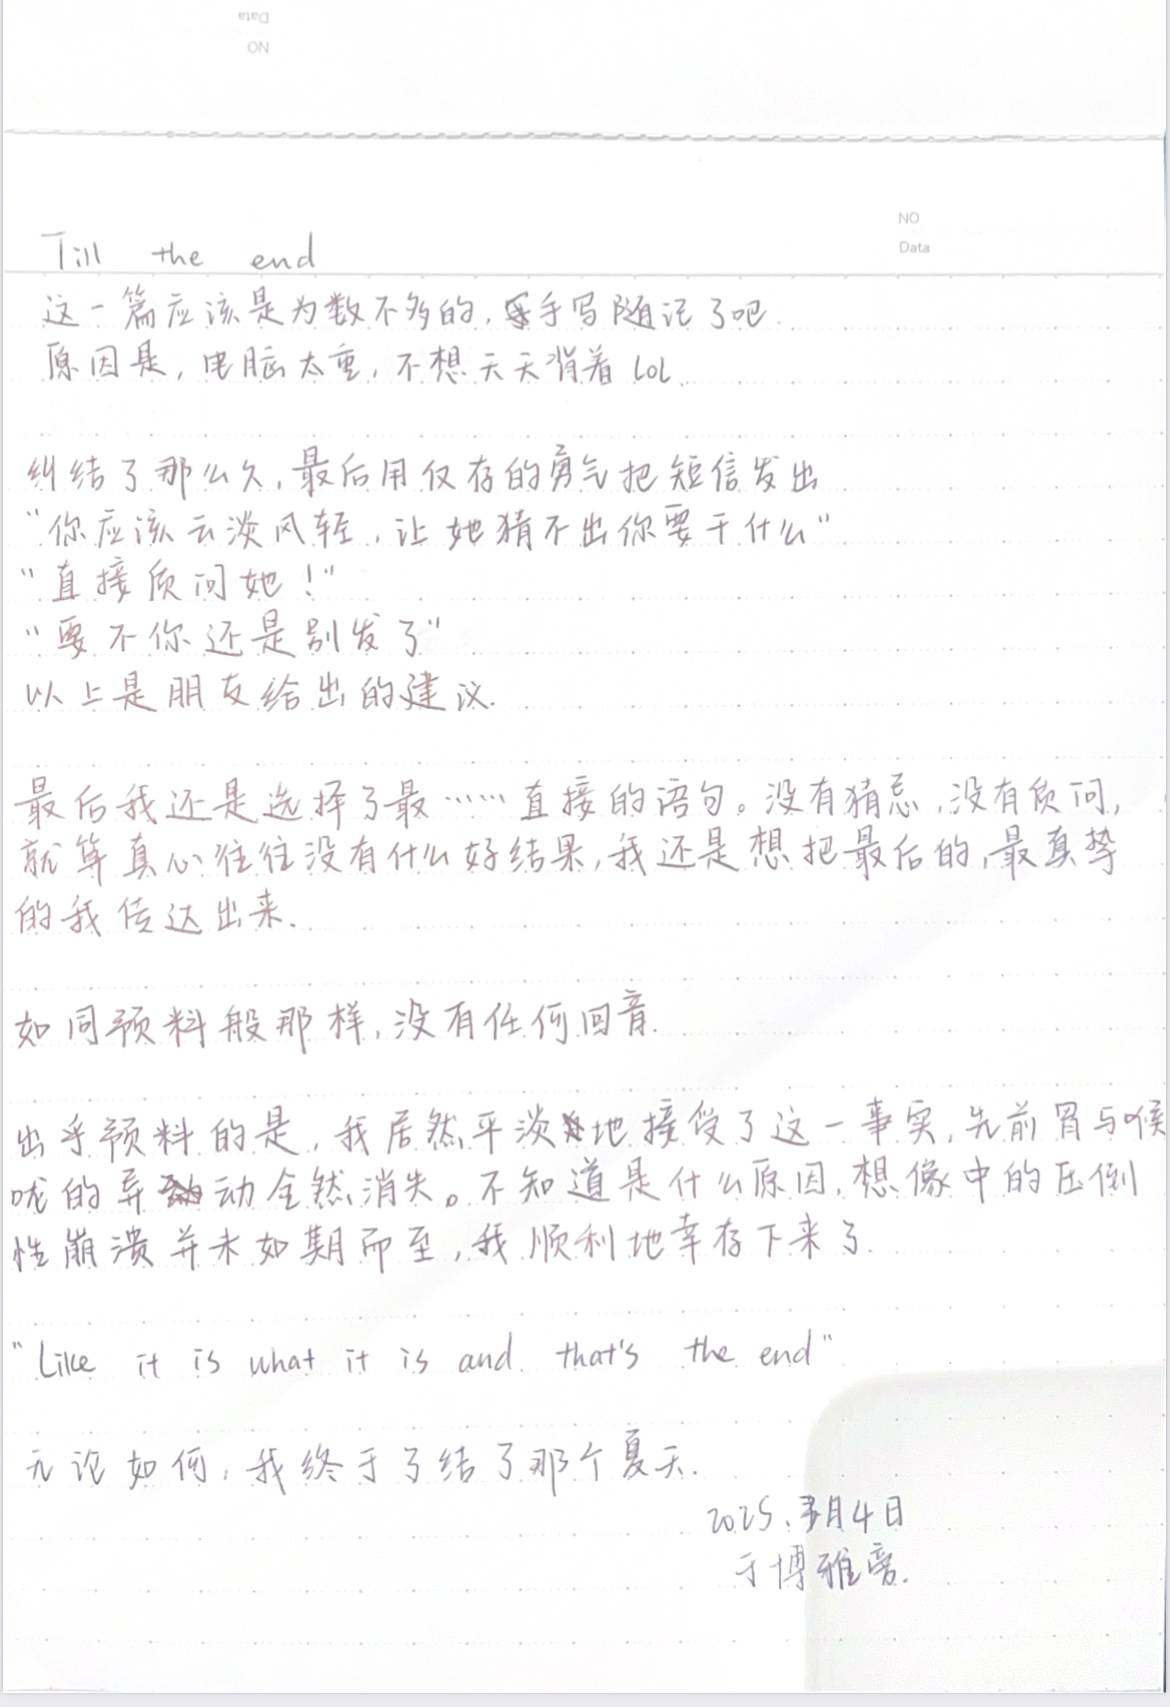 Data
NO
NO
Data
Till the end
这一篇应该是为数不多的,手写随记了吧.
原因是,电脑太重,不想天天背着lol.
纠结了那么久,最后用仅存的勇气把短信发出
"你应该云淡风轻,让她猜不出你要干什么"
"直接质问她!"
"要不你还是别发了"
以上是朋友给出的建议.
最后我还是选择了最……直接的语句。没有猜忌,没有质问,
就算真心往往没有什么好结果,我还是想把最后的,最真挚
的我传达出来.
如同预料般那样,没有任何回音.
出乎预料的是,我居然平淡地接受了这一事实,先前胃与喉
咙的异动全然消失。不知道是什么原因,想像中的压倒
性崩溃并未如期而至,我顺利地幸存下来了.
"Like it is what it is and that's the end"
无论如何,我终于了结了那个夏天.
2025.月4日
于博雅旁.